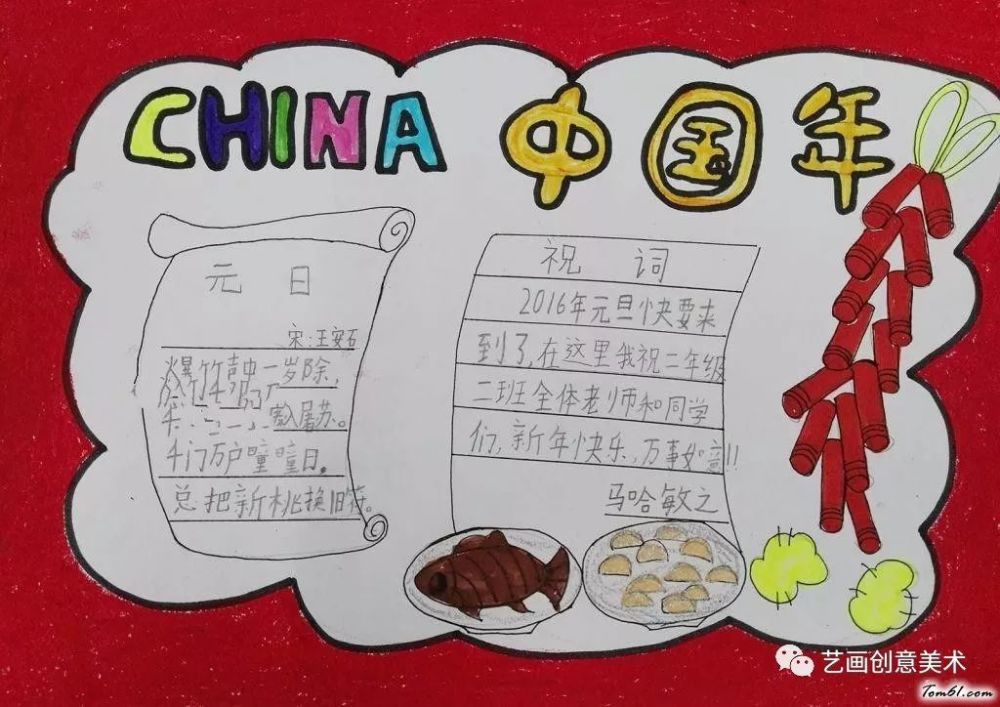 CHINA 中国年
元 日
宋:王安石
爆竹声中一岁除,
入屠苏。
千门万户曈曈日。
总把新桃换旧符。
祝 词
2016年元旦快要来
到了,在这里我祝二年级
二班全体老师和同学
们,新年快乐,万事如意!!
马哈敏之
艺画创意美术
Tom61.com